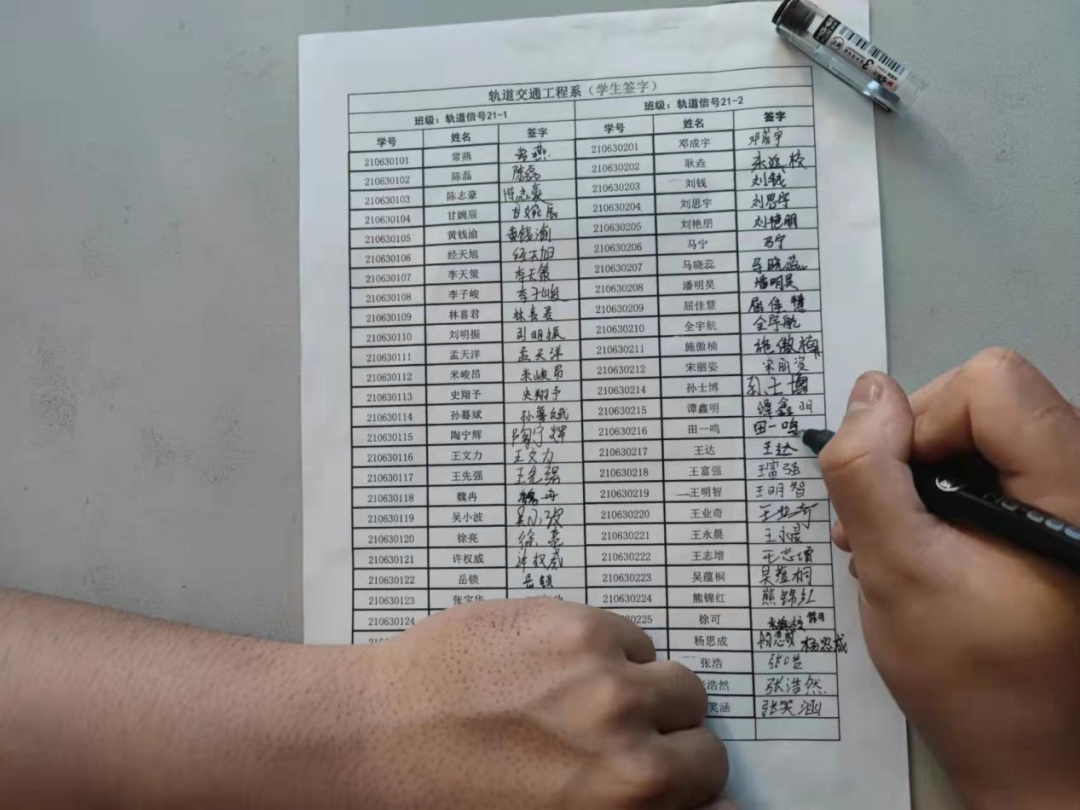 轨道交通工程系(学生签字)
班级:轨道信号21-1 班级:轨道信号21-2
学号 姓名 签字 学号 姓名 签字
210630101 常燕 常燕 210630201 邓成宇 邓成宇
210630102 陈磊 陈磊 210630202 耿垚 未返校
210630103 陈志豪 陈志豪 210630203 刘钱 刘钱
210630104 甘婉辰 甘婉辰 210630204 刘思宇 刘思宇
210630105 黄钱渝 黄钱渝 210630205 刘艳朋 刘艳朋
210630106 经天旭 经天旭 210630206 马宁 马宁
210630107 李天策 李天策 210630207 马晓蕊 马晓蕊
210630108 李子峻 李子峻 210630208 潘明昊 潘明昊
210630109 林喜君 林喜君 210630209 屈佳慧 屈佳慧
210630110 刘明振 刘明振 210630210 全宇航 全宇航
210630111 孟天洋 孟天洋 210630211 施傲楠 施傲楠
210630112 米峻昂 米峻昂 210630212 宋丽姿 宋丽姿
210630113 史翔予 史翔予 210630214 孙士博 孙士博
210630114 孙蓦斌 孙蓦斌 210630215 谭鑫明 谭鑫明
210630115 陶宁辉 陶宁辉 210630216 田一鸣 田一鸣
210630116 王文力 王文力 210630217 王达 王达
210630117 王先强 王先强 210630218 王富强 王富强
210630118 魏冉 魏冉 210630219 王明智 王明智
210630119 吴小波 吴小波 210630220 王业奇 王业奇
210630120 徐亮 徐亮 210630221 王永晨 王永晨
210630121 许权威 许权威 210630222 王志增 王志增
210630122 岳锁 岳锁 210630223 吴蕴桐 吴蕴桐
210630123 张宝华 210630224 熊锦红 熊锦红
210630124 225 徐可 未返校
杨思成 杨思成 杨思成
张浩 张浩
张浩然 张浩然
笑涵 张笑涵